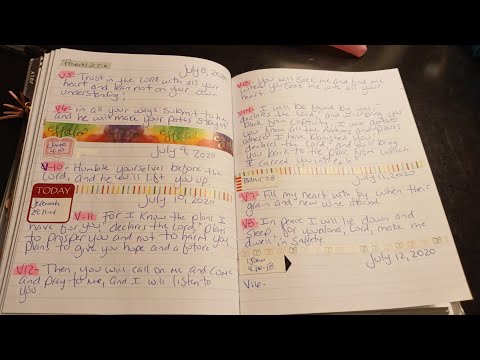 Proverbs 3:5-6
July 8, 2020
V5- Trust in the Lord with all your
heart and lean not on your own
understanding;
V6- in all your ways submit to him
and he will make your paths straight
James
4:10
July 9, 2020
V-10- Humble yourselves before the
Lord, and he will lift you up
TODAY
July 10, 2020
Jeremiah
29:11-14
V-11- For I know the plans I
have for you", declares the Lord, "plans
to prosper you and not to harm you,
plans to give you hope and a future
V12- Then you will call on me and come
and pray to me, and I will listen to
you
V13- You will seek me and find me
when you seek me with all your
heart.
V-14- I will be found by you,"
declares the Lord, "and will bring you
back from captivity.
you from all the nations and places
where I have banished you,"
declares the Lord, "and will bring
you back to the place from which
I carried you into exile
July 11, 2020
V7- Fill my heart with joy when their
grain and new wine abound.
V8- In peace I will lie down and
sleep, for you alone, Lord, make me
dwell in safety
July 12, 2020
V16-